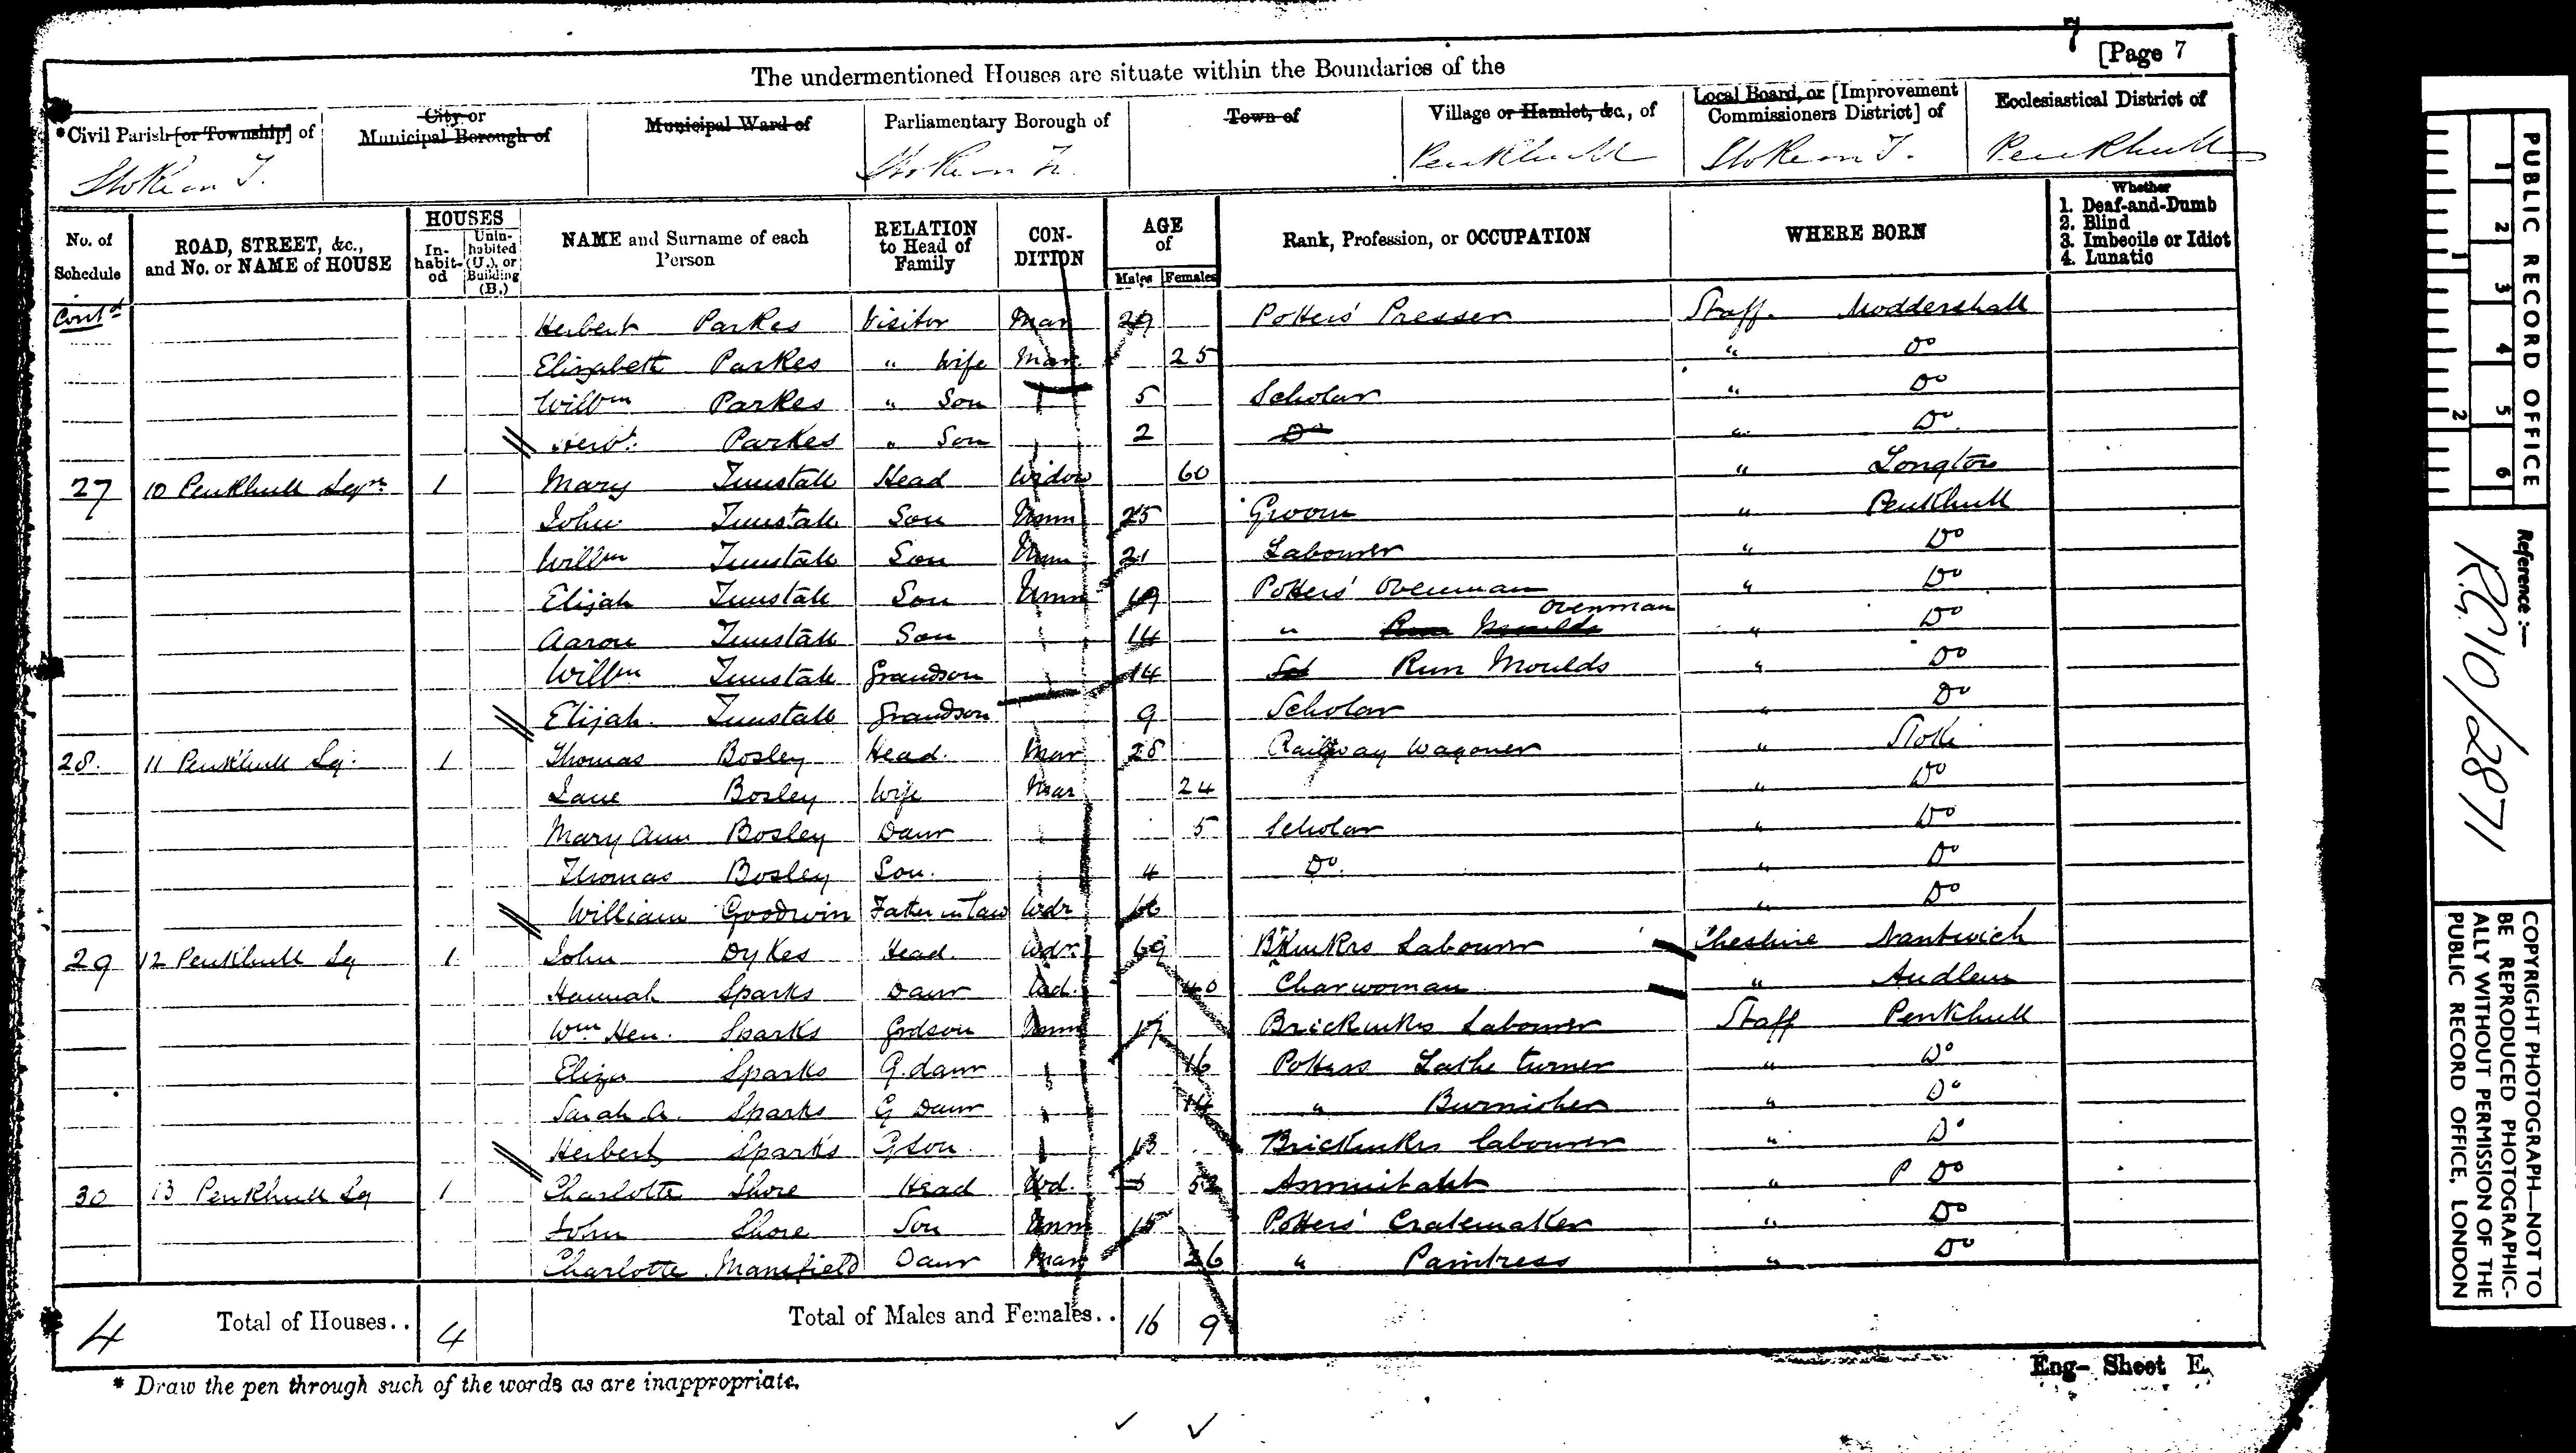 7
[Page 7
The undermentioned Houses are situate within the Boundaries of the
*Civil Parish [or Township] of | City or Municipal Borough of | Municipal Ward of | Parliamentary Borough of | Town of | Village or Hamlet, &c., of | Local Board, or [Improvement Commissioners District] of | Ecclesiastical District of
Stoke on T. | Stoke on Tr. | Penkhull | Stoke on T. | Penkhull
No. of Schedule | ROAD, STREET, &c., and No. or NAME of HOUSE | HOUSES Inhabited | Uninhabited (U.), or Building (B.) | NAME and Surname of each Person | RELATION to Head of Family | CONDITION | AGE of Males | Females | Rank, Profession, or OCCUPATION | WHERE BORN | Whether 1. Deaf-and-Dumb 2. Blind 3. Imbecile or Idiot 4. Lunatic
Contd Herbert Parkes Visitor Mar 29 Potters' Presser Staff. Moddershall
Elizabeth Parkes " Wife Mar. 25 " Do
Willm Parkes " Son 5 Scholar " Do
Herbt. Parkes " Son 2 Do " Do.
27 10 Penkhull Sqr. 1 Mary Tunstall Head Widow 60 " Longton
John Tunstall Son Unm 25 Groom " Penkhull
Willm Tunstall Son Unm 21 Labourer " Do
Elijah Tunstall Son Unm 19 Potters' Ovenman " Do
Aaron Tunstall Son 14 " Run Moulds Ovenman " Do
Willm Tunstall Grandson 14 Sch Run Moulds " Do
Elijah Tunstall Grandson 9 Scholar " Do
28. 11 Penkhull Sq. 1 Thomas Bosley Head. Mar 28 Railway Wagoner " Stoke
Jane Bosley Wife Mar 24 " Do
Mary Ann Bosley Daur 5 Scholar " Do
Thomas Bosley Son. 4 Do. " Do
William Goodwin Father in Law Wdr 66 " Do
29 12 Penkhull Sq 1 John Dykes Head. Wdr. 69 Bkmkrs Labourer Cheshire Nantwich
Hannah Sparks Daur Wd. 40 Charwoman " Audlem
Wm Hen. Sparks Grdson Unm 17 Brickmkrs Labourer Staff Penkhull
Eliza Sparks G. daur 16 Potters Lathe turner " Do
Sarah A. Sparks G Daur 14 " Burnisher " Do
Herbert Sparks G Son 13 Brickmkrs labourer " Do
30 13 Penkhull Sq 1 Charlotte Shore Head Wd. 52 Annuitant " P Do
John Shore Son Unm 15 Potters' Cratemaker " Do
Charlotte Mansfield Daur Mar 26 " Paintress " Do
4 Total of Houses.. 4 Total of Males and Females.. 16 9
* Draw the pen through such of the words as are inappropriate.
Eng- Sheet E.
PUBLIC RECORD OFFICE
1 2 3 4 5 6
1 2
Reference :—
RG 10/2871
COPYRIGHT PHOTOGRAPH—NOT TO
BE REPRODUCED PHOTOGRAPHIC-
ALLY WITHOUT PERMISSION OF THE
PUBLIC RECORD OFFICE, LONDON